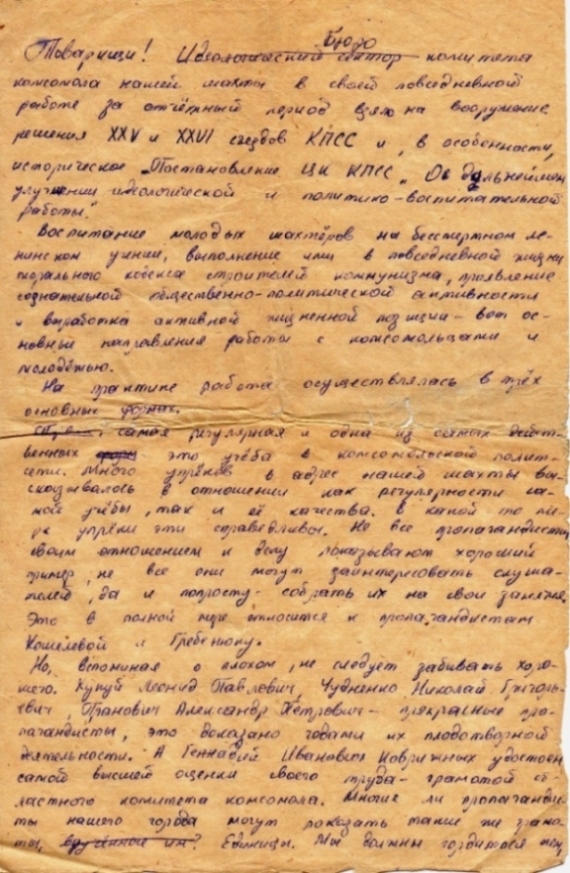 Бюро
Товарищи! Идеологический сектор комитета
комсомола нашей шахты в своей повседневной
работе за отчётный период взяло на вооружение
решения XXV и XXVI съездов КПСС и, в особенности,
историческое „Постановление ЦК КПСС „Об дальнейшем
улучшении идеологической и политико-воспитательной
работы."
Воспитание молодых шахтёров на бессмертном ле-
нинском учении, выполнение ими в повседневной жизни
морального кодекса строителей коммунизма, проявление
сознательной общественно-политической активности
и выработка активной жизненной позиции - вот ос-
новные направления работы с комсомольцами и
молодёжью.
На практике работа осуществлялась в трёх
основных формах.
самая регулярная и одна из самых дейст-
венных это учёба в комсомольской полит-
сети. Много упрёков в адрес нашей шахты вы-
сказывалось в отношении как регулярности са-
мой учёбы, так и её качества. В какой то ме-
ре упрёки эти справедливы. Не все пропагандисты
своим отношением к делу показывают хороший
пример, не все они могут заинтересовать слуша-
телей, да и попросту - собрать их на свои занятия.
Это в полной мере относится к пропагандистам
Кошелевой и Гребенюку.
Но, вспоминая о плохом, не следует забывать хоро-
шего. Леонид Павлович, Чудненко Николай Григорь-
евич, Панович Александр Петрович - прекрасные про-
пагандисты, это доказано годами их плодотворной
деятельности. А Геннадий Иванович Коврижных удостоен
самой высшей оценки своего труда - грамотой об-
ластного комитета комсомола. Многие ли пропагандис-
ты нашего города могут показать такие же грамо-
ты, вручённые им? Единицы. Мы должны гордиться